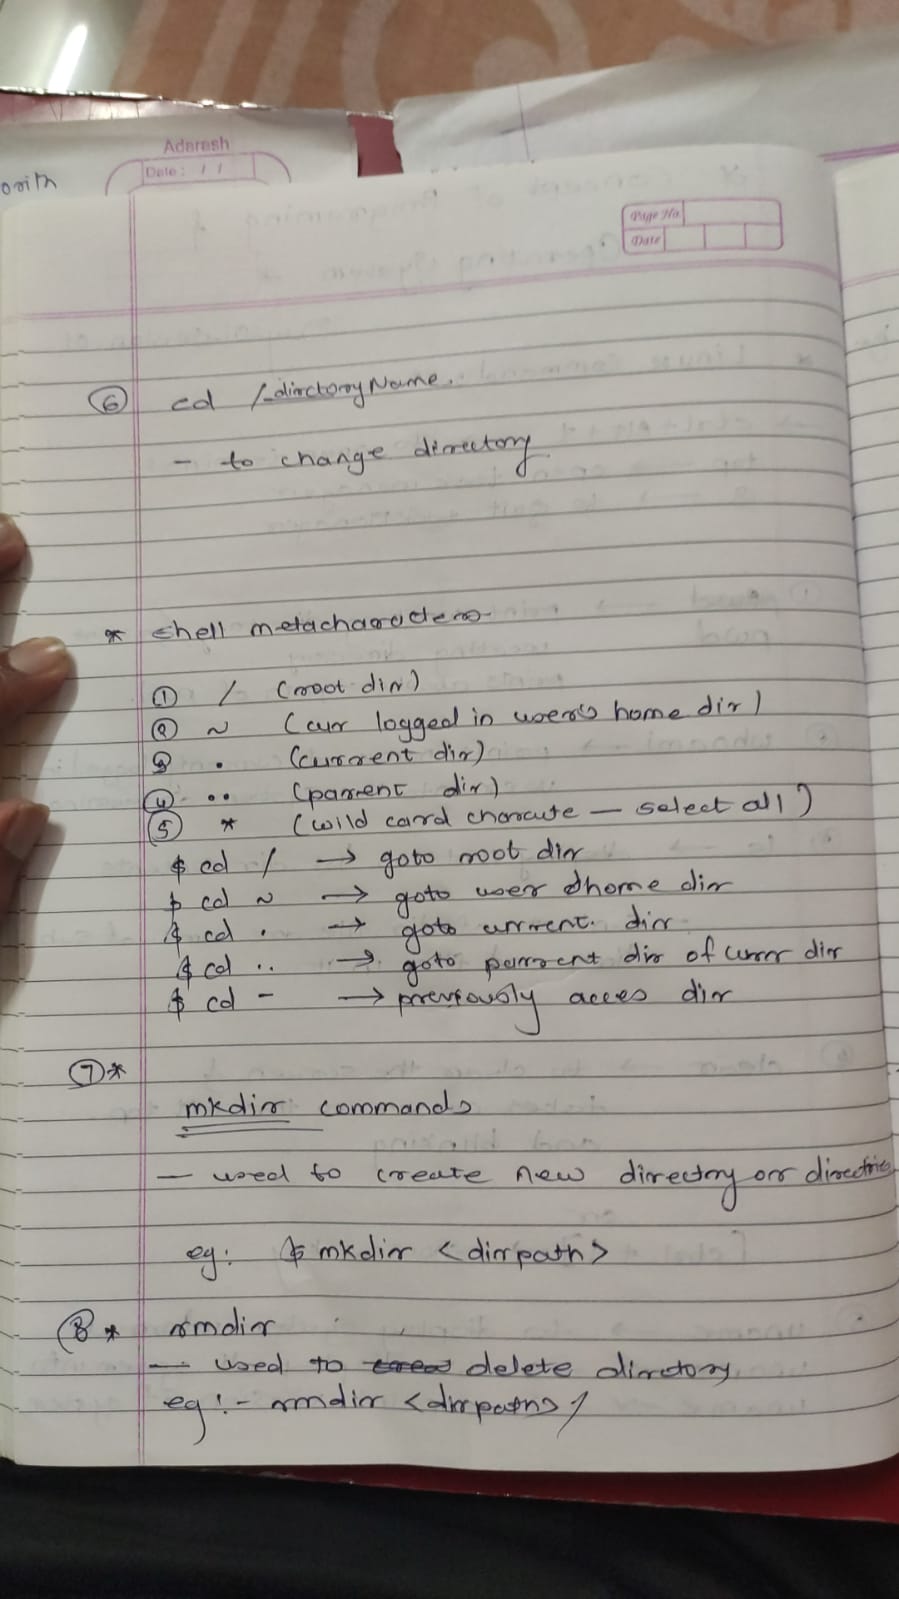 Adarsh
Date: / /
Page No.
Date
⑥ cd /directoryName.
- to change directory
* shell metacharacters
① / (root dir)
② ~ (curr logged in user's home dir)
③ . (current dir)
④ .. (parrent dir)
⑤ * (wild card characte - select all)
$ cd / → goto root dir
$ cd ~ → goto user home dir
$ cd . → goto current. dir
$ cd .. → goto parrent dir of curr dir
$ cd - → previously acces dir
⑦*
mkdir commands
- used to create new directory or directries
eg: $ mkdir <dirpath>
⑧* rmdir
- used to delete directory
eg:- rmdir <dirpath>/